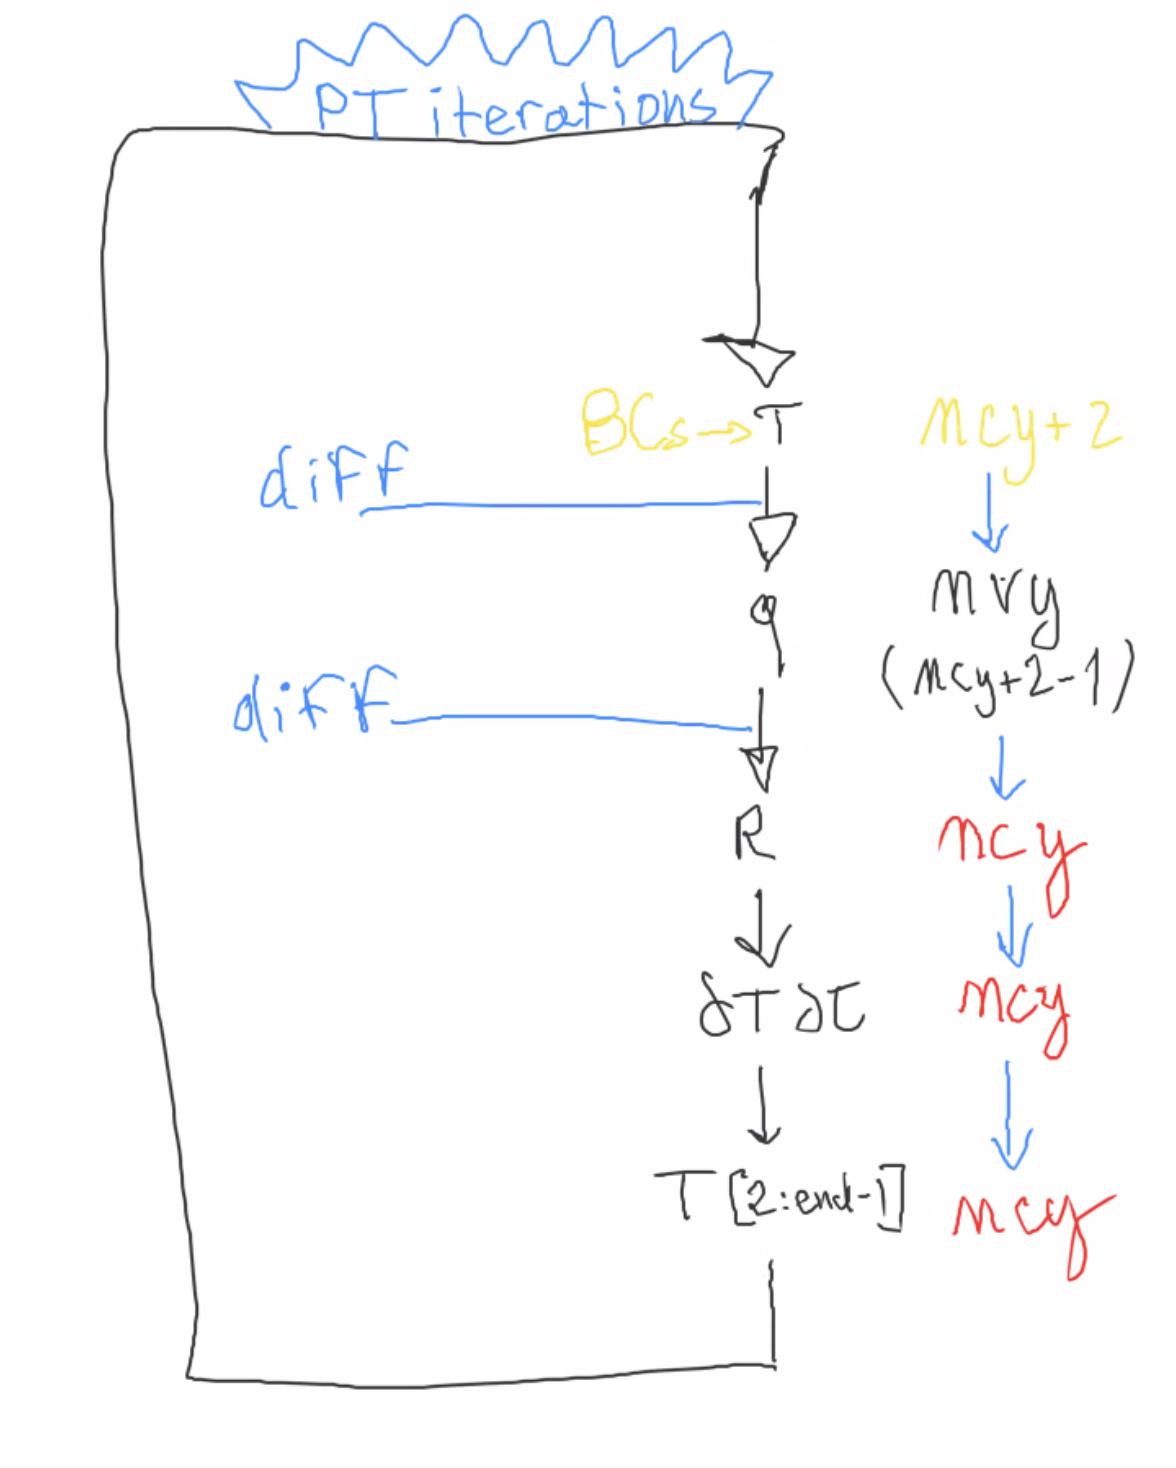 PT iterations
BCs→ T ncy+2
diff
q nvy
(ncy+2-1)
diff
R ncy
∂T∂τ ncy
T[2:end-1] ncy